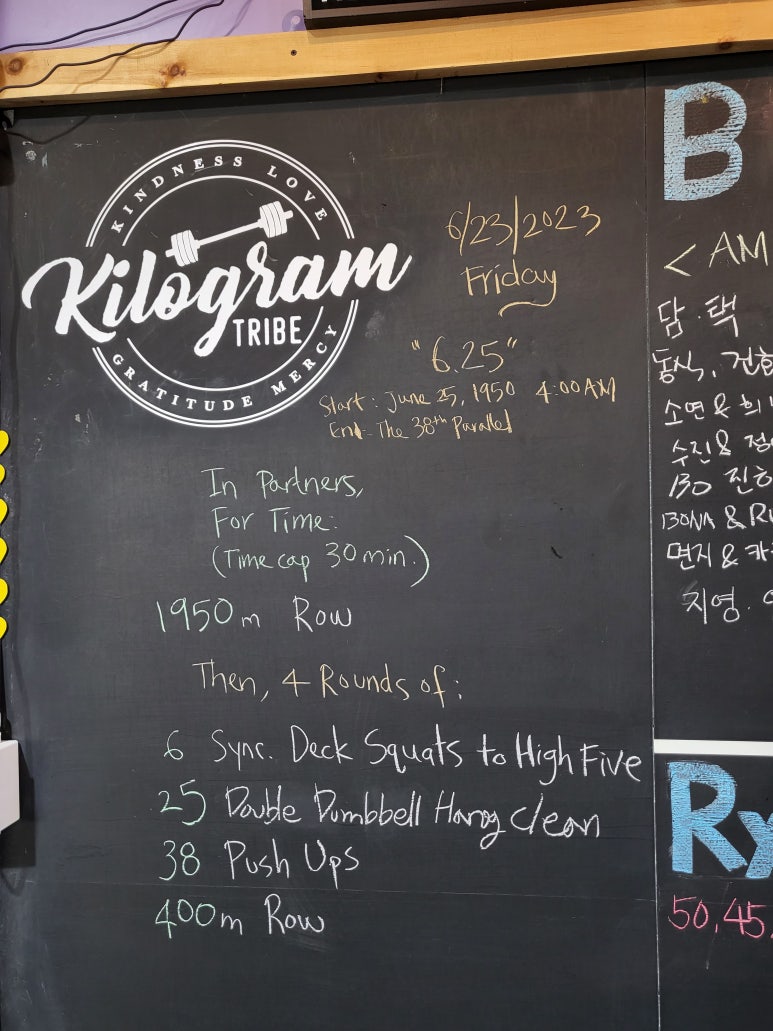 KINDNESS LOVE
Kilogram
TRIBE
GRATITUDE MERCY
6/23/2023
Friday
"6.25"
Start: June 25, 1950 4:00AM
End: The 38th Parallel
In Partners,
For Time:
(Time cap 30 min.)
1950m Row
Then, 4 Rounds of:
6 Sync. Deck Squats to High Five
25 Double Dumbbell Hang clean
38 Push Ups
400m Row
B
< AM
담.택
동식, 건호
소연 & 희
수진 &
BO 진
BONA &
면지 &
지영.
Ry
50, 45,